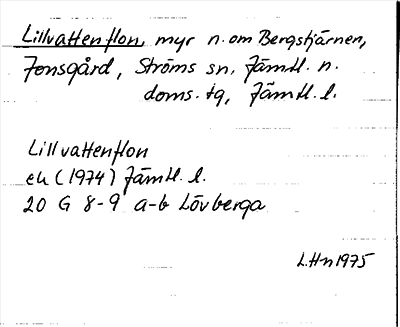 Lillvattenflon, myr n. om Bergstjärnen,
Jonsgård, Ströms sn. Jämtl. n.
doms. tg, Jämtl. l.
Lillvattenflon
ek (1974) Jämtl. l.
20 G 8-9 a-b Lövberga
L.Hn 1975